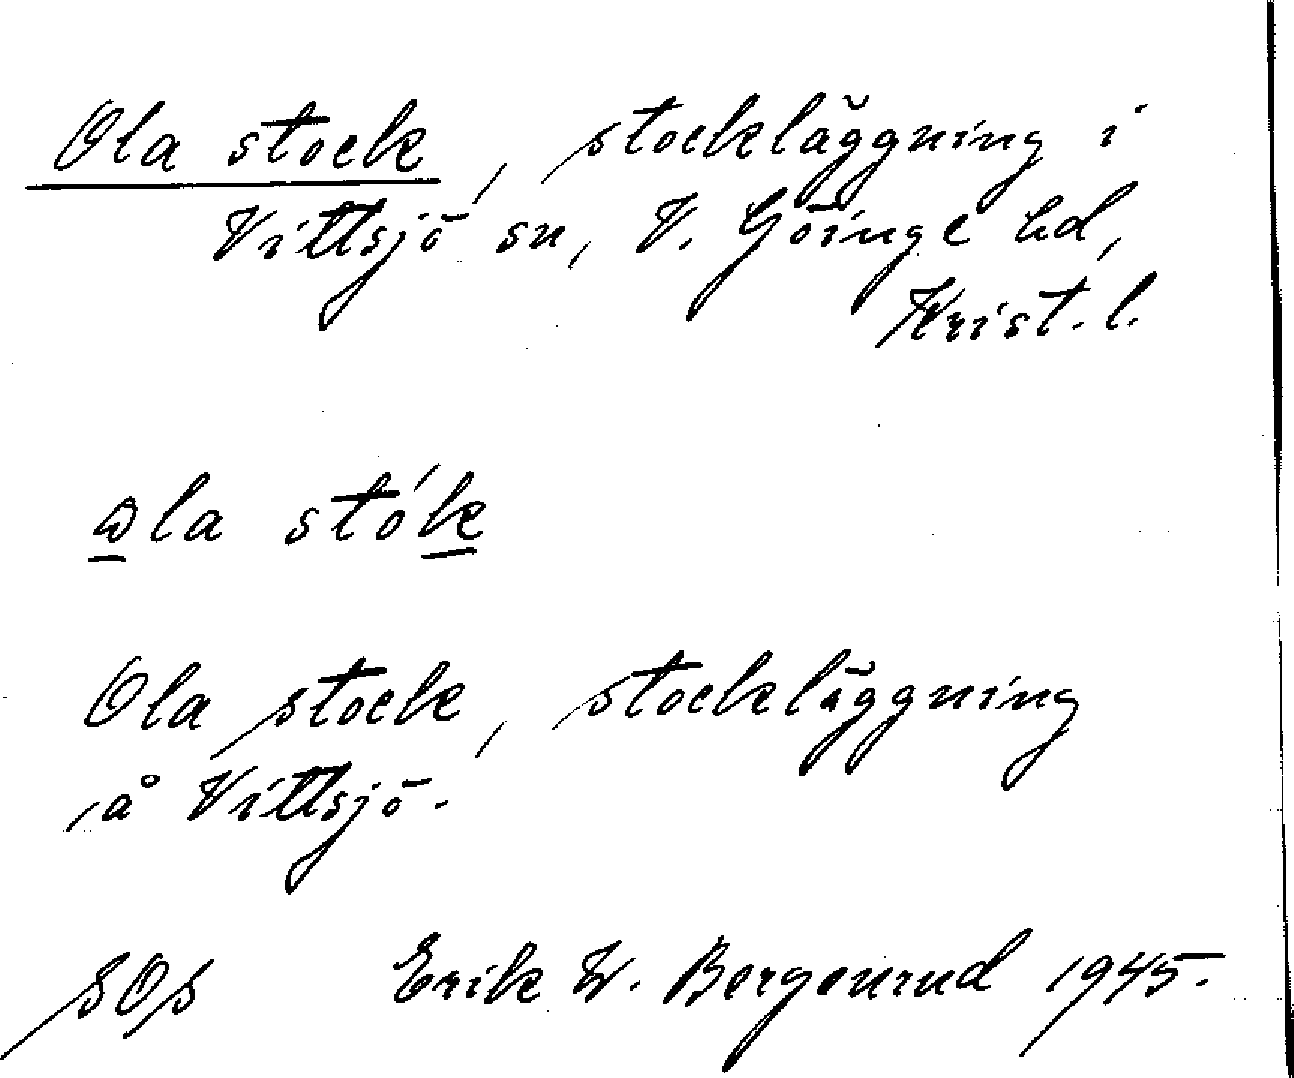 Ola stock, stockläggning i
Vittsjö sn, V. Göinge hd,
Krist. l.
ωla stók
Ola stock, stockläggning
å Vittsjö.
SOS Erik W. Bergenrud 1945.